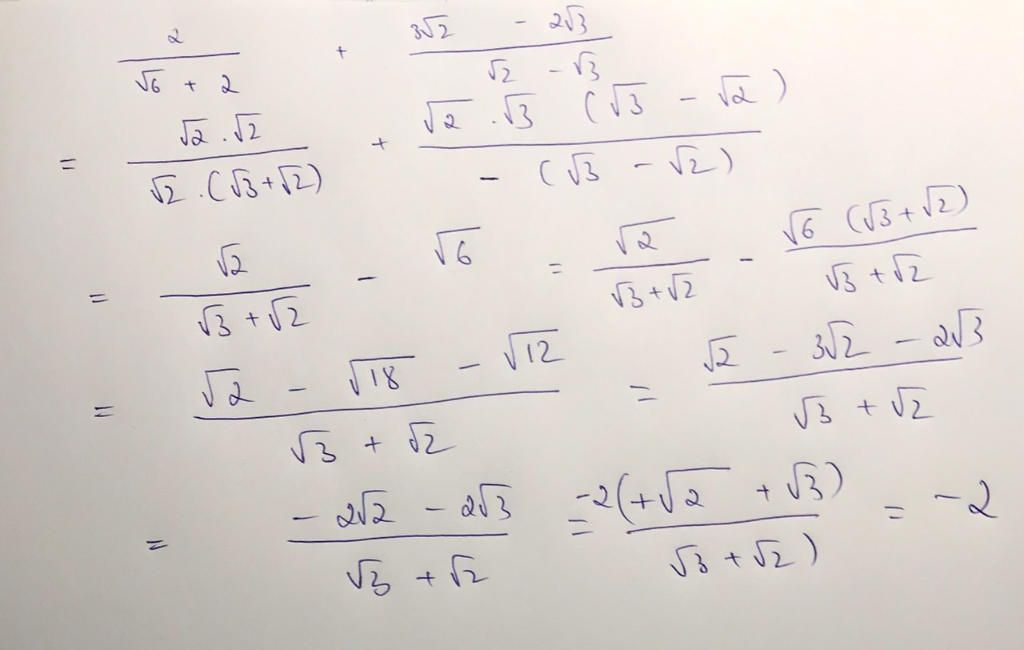 2/(√6 + 2) + (3√2 - 2√3)/(√2 - √3)
= (√2 . √2)/(√2 . (√3+√2)) + (√2 . √3 (√3 - √2))/(- (√3 - √2))
= √2/(√3 + √2) - √6 = √2/(√3+√2) - (√6 (√3+√2))/(√3 + √2)
= (√2 - √18 - √12)/(√3 + √2) = (√2 - 3√2 - 2√3)/(√3 + √2)
= (- 2√2 - 2√3)/(√3 + √2) = -2(+√2 + √3)/(√3 + √2) = -2